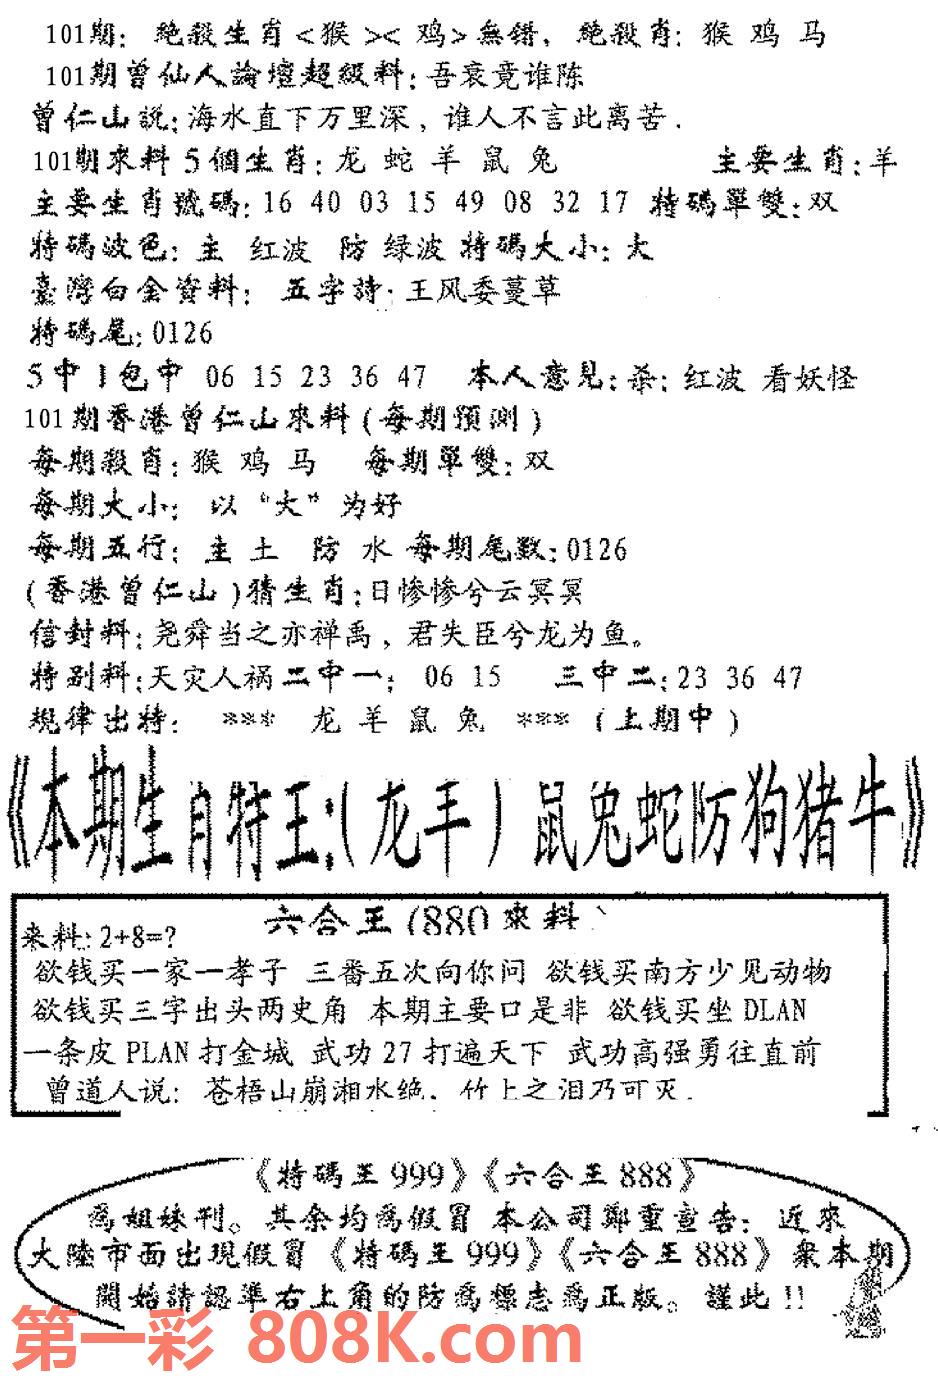 101期: 絶殺生肖<猴><鸡>無错, 絶殺肖: 猴 鸡 马
101期曾仙人論壇超級料:吾衰竟谁陈
曾仁山説:海水直下万里深, 谁人不言此离苦.
101期來料5個生肖:龙 蛇 羊 鼠 兔 主要生肖:羊
主要生肖號碼:16 40 03 15 49 08 32 17 特碼單雙:双
特碼波色: 主 红波 防 绿波 特碼大小:大
臺灣白金資料: 五字詩:王风委蔓草
特碼尾:0126
5中1包中 06 15 23 36 47 本人意見:杀:红波 看妖怪
101期香港曾仁山來料(每期預測)
每期殺肖:猴 鸡 马 每期單雙:双
每期大小: 以“大”为好
每期五行: 主 土 防 水 每期尾数:0126
(香港曾仁山)猜生肖:日惨惨兮云冥冥
信封料:尧舜当之亦禅禹, 君失臣兮龙为鱼。
特别料:天灾人祸二中一: 06 15 三中二:23 36 47
規律出特: *** 龙 羊 鼠 兔 *** (上期中)
《本期生肖特王:(龙羊)鼠兔蛇防狗猪牛》
六合王(880來料)
来料:2+8=?
欲钱买一家一孝子 三番五次向你问 欲钱买南方少见动物
欲钱买三字出头两史角 本期主要口是非 欲钱买坐DLAN
一条皮PLAN打金城 武功27打遍天下 武功高强勇往直前
曾道人说: 苍梧山崩湘水绝. 竹上之泪乃可灭.
《特碼王999》《六合王888》
爲姐妹刊。其余均爲假冒 本公司鄭重宣告: 近來
大陸市面出現假冒《特碼王999》《六合王888》衆本期
開始請認準右上角的防爲標志爲正版。謹此!!
第一彩 808K.com